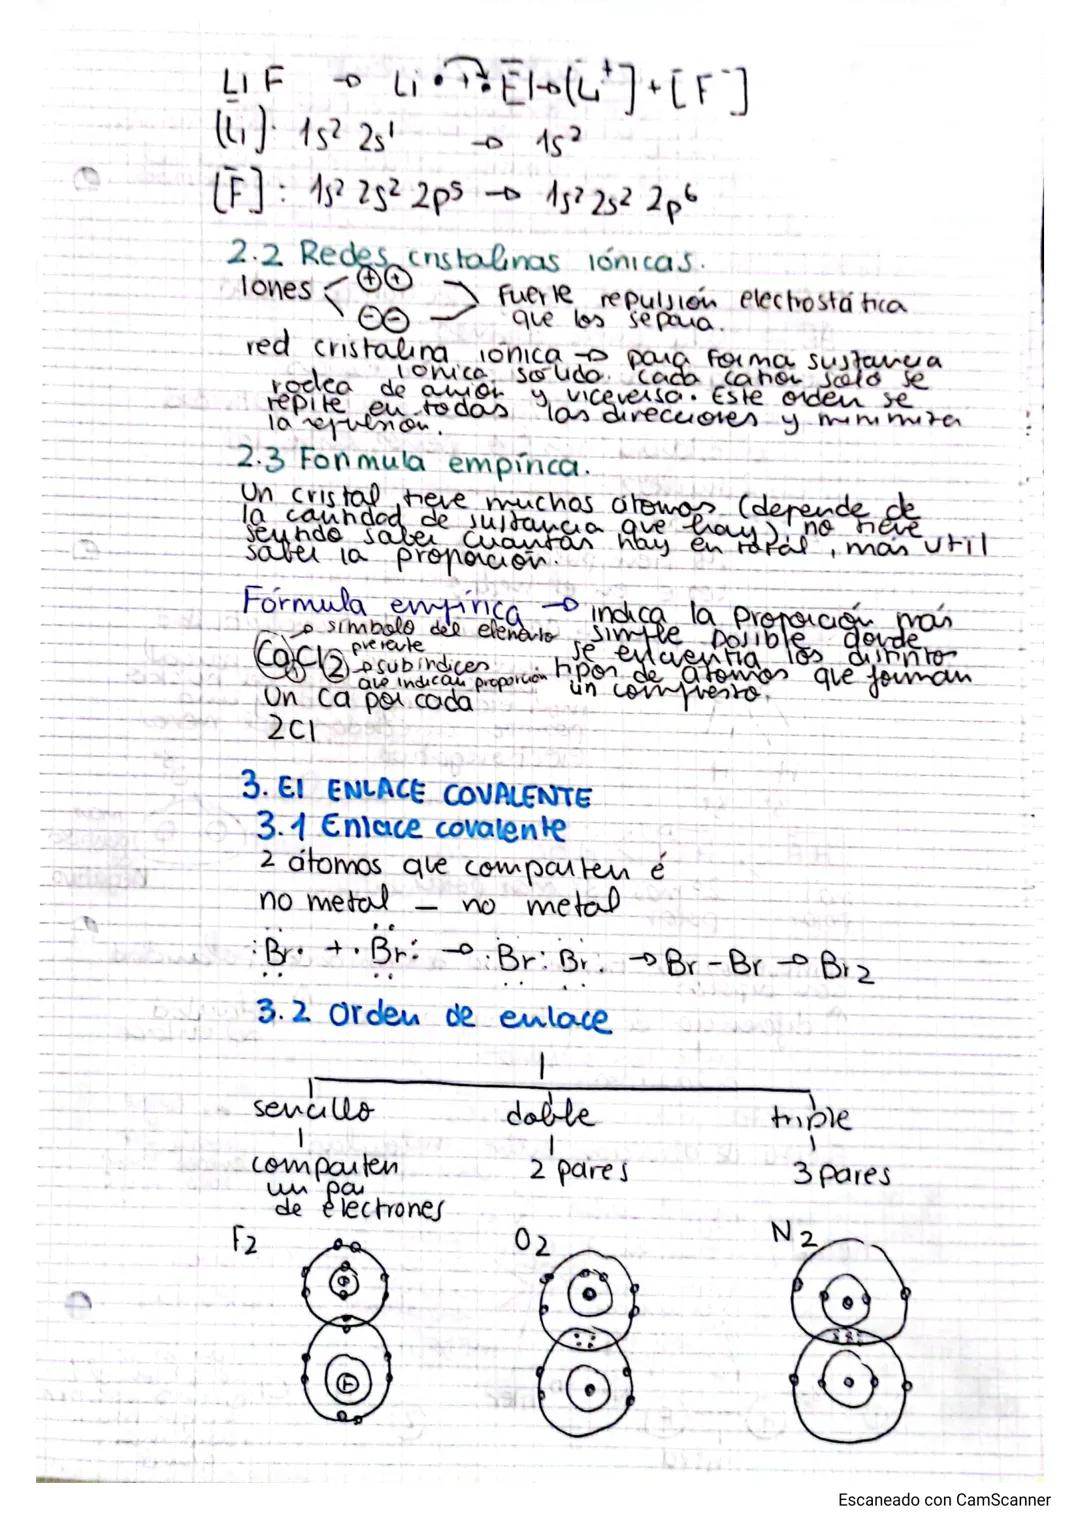 LiF → Li· + :F| → [Li⁺] + [F⁻]
[Li]: 1s² 2s¹ → 1s²
[F]: 1s² 2s² 2p⁵ → 1s² 2s² 2p⁶
2.2 Redes cristalinas iónicas.
Iones ⊕⊕ ⊖⊖ Fuerte repulsión electrostática
que los separa.
red cristalina iónica → para forma sustancia
iónica sólido. Cada catión solo se
rodea de anión y viceversa. Este orden se
repite en todas las direcciones y minimiza
la repulsión.
2.3 Formula empírica.
Un cristal tiene muchos átomos (depende de
la cantidad de sustancia que hay), no tiene
sentido saber cuantas hay en total, más util
saber la proporción.
Fórmula empírica → indica la proporción más
simple posible donde
se encuentra los distintos
tipos de átomos que forman
un compuesto.
Ca₁Cl₂
→ símbolo del elemento
presente
→ subíndices
que indican proporción
Un Ca por cada
2Cl
3. El ENLACE COVALENTE
3.1 Enlace covalente
2 átomos que comparten é
no metal – no metal
:Br· + ·Br: → :Br:Br: → Br-Br → Br2
3.2 Orden de enlace
sencillo doble triple
comparten 2 pares 3 pares
un par
de electrones
F2 O2 N2
Escaneado con CamScanner